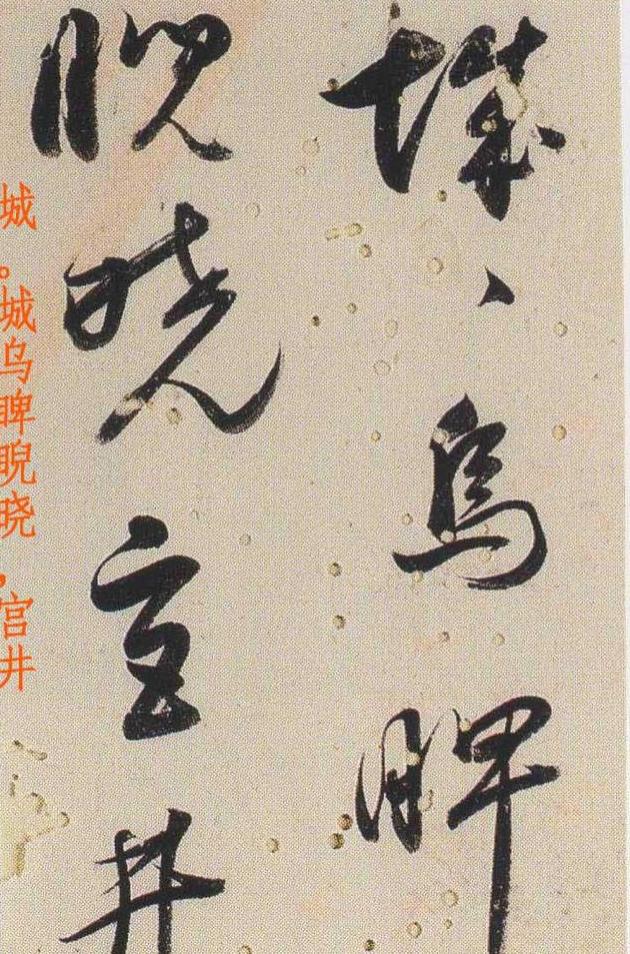 城、烏睥
睨曉宮井
城。城乌睥睨晓，宫井